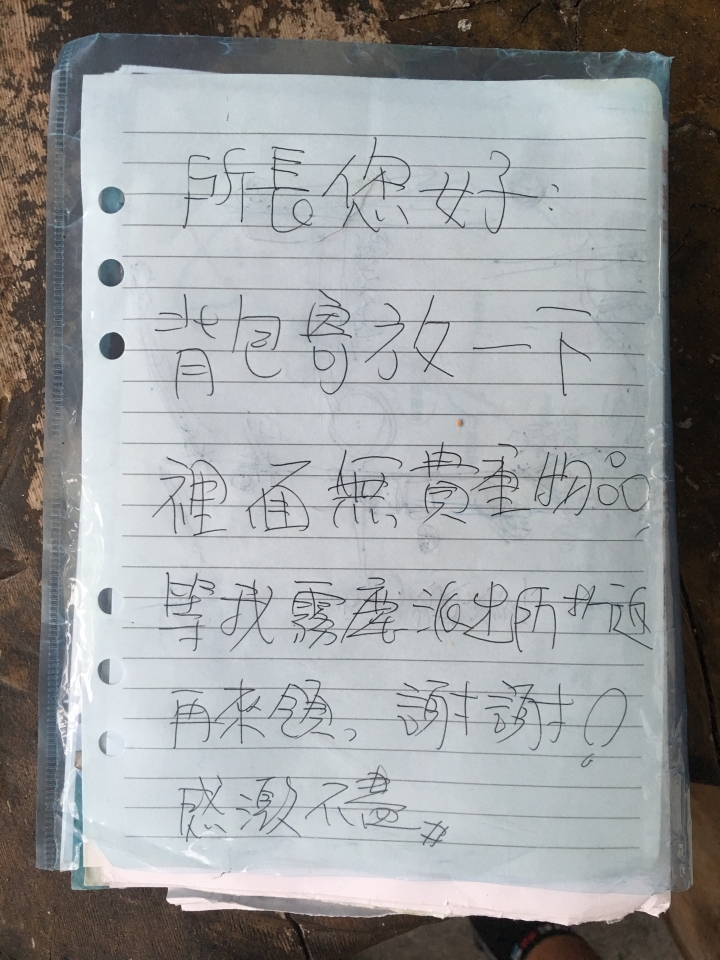 所長您好:
背包寄放一下
裡面無貴重物品
等我霧鹿派出所折返
再來領、謝謝!
感激不盡〃